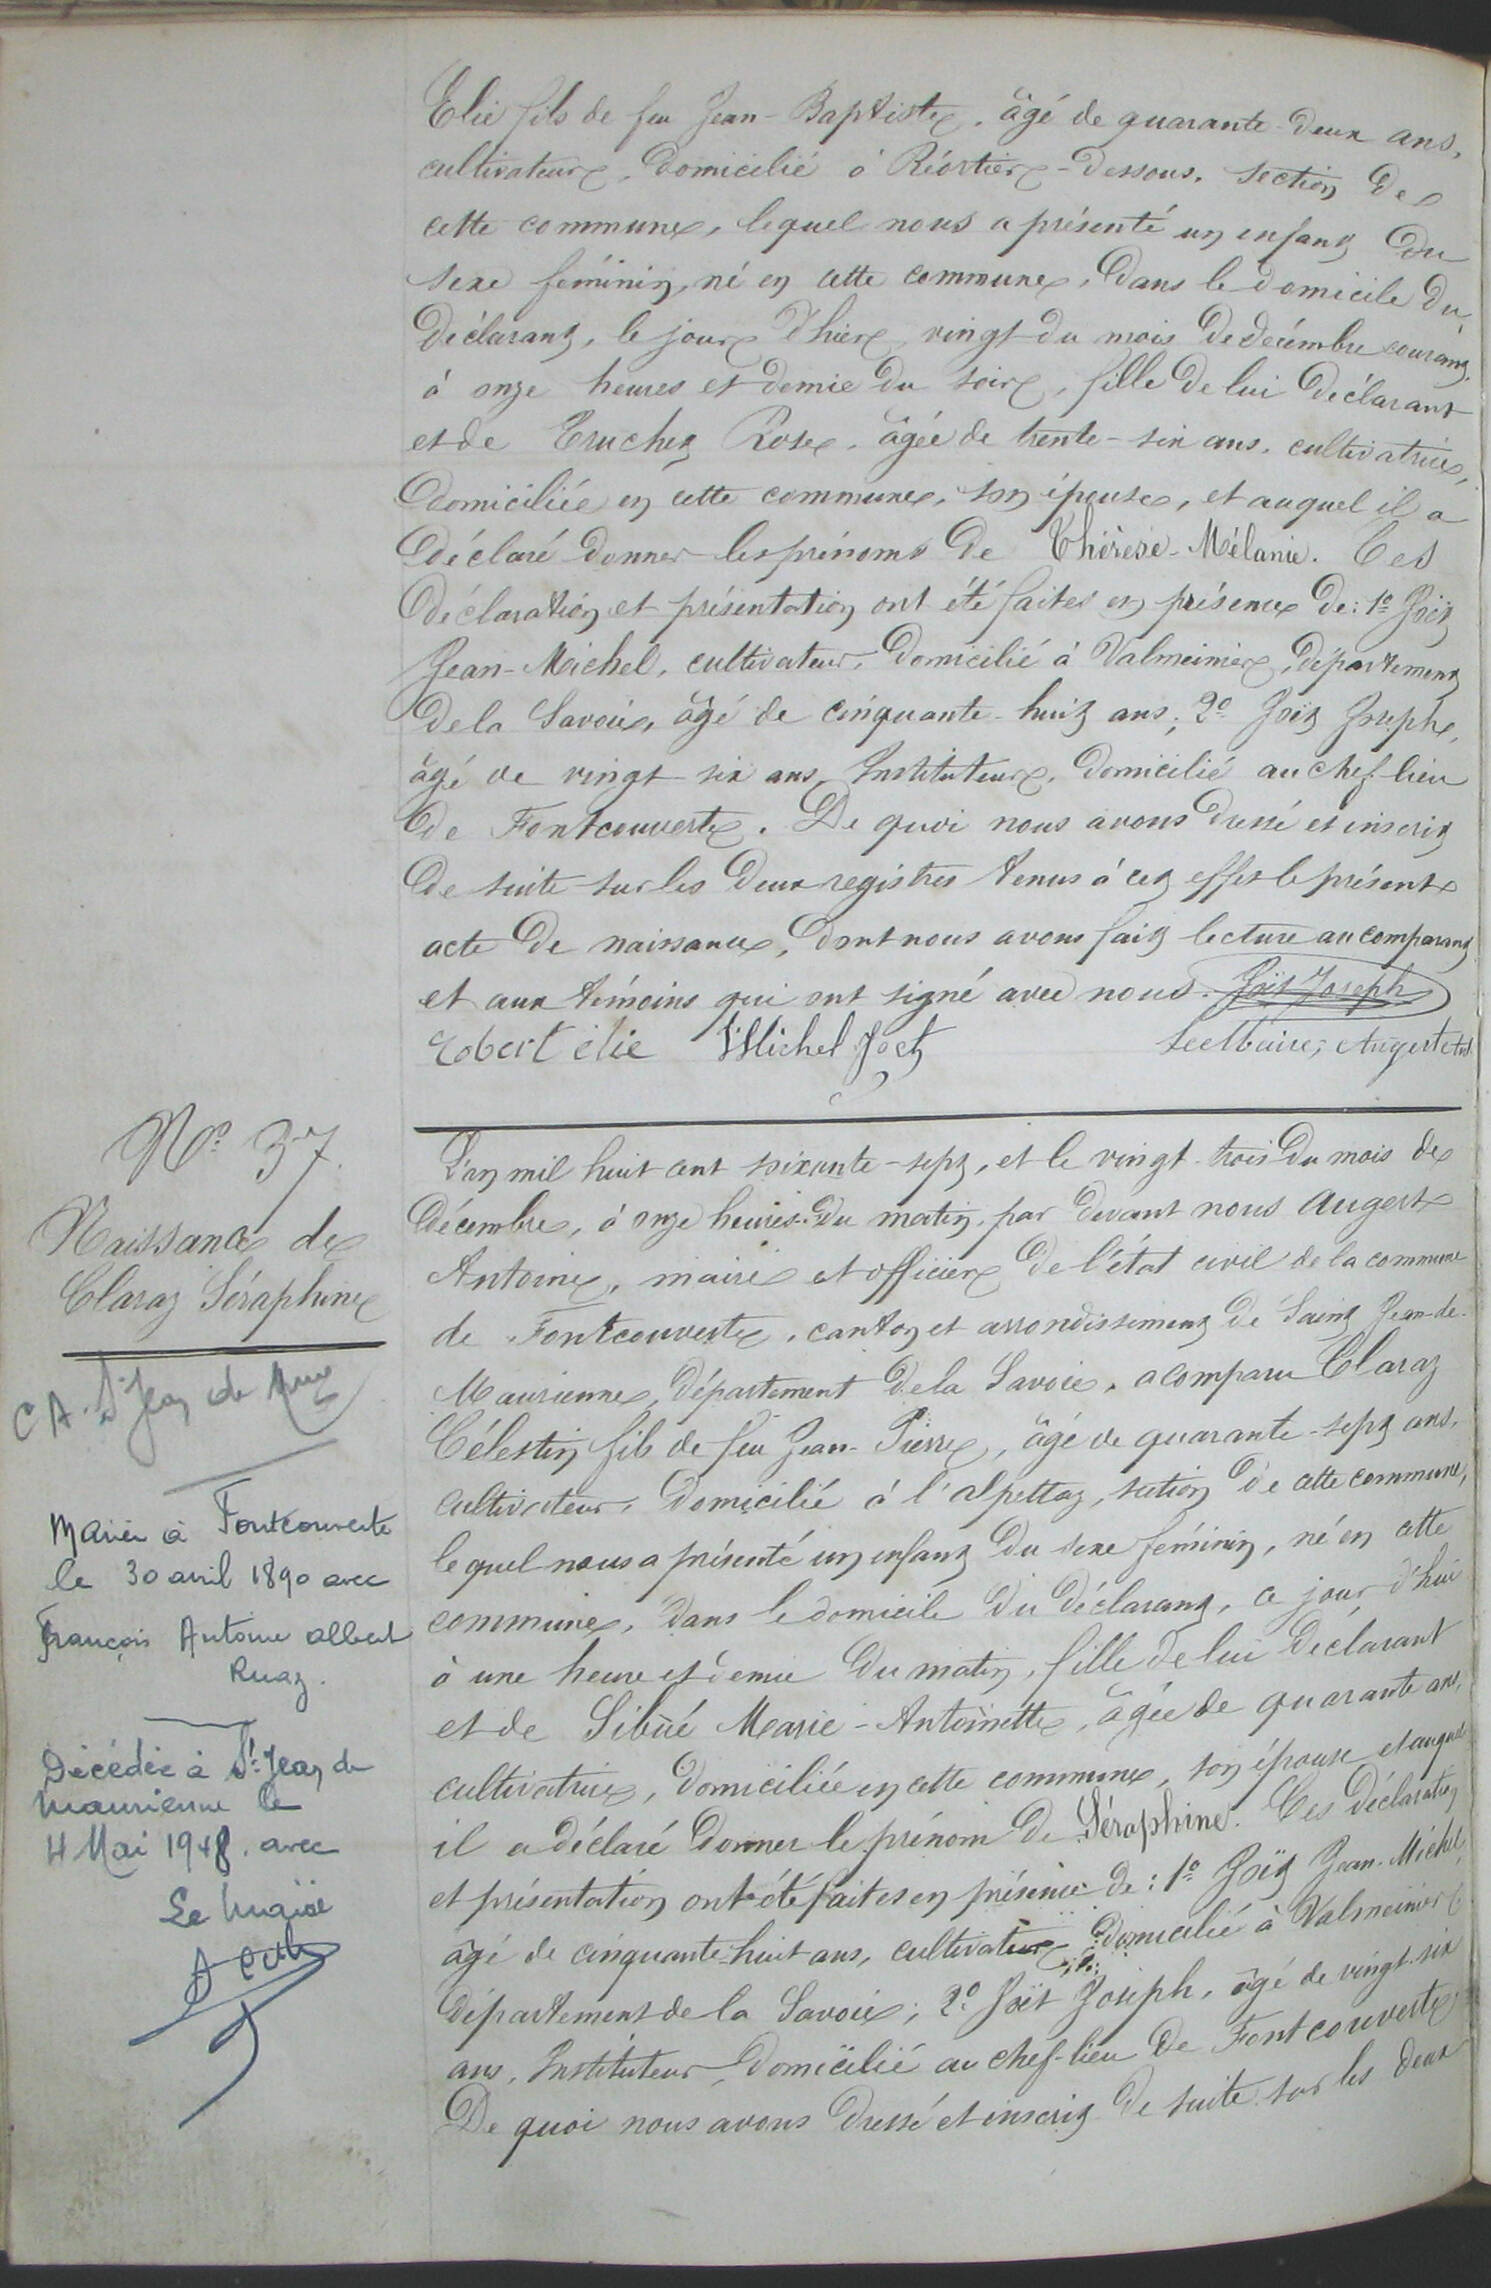 Elie fils de feu Jean-Baptiste, âgé de quarante-deux ans,
cultivateur, domicilié à Riortier-dessous, section de
cette commune, lequel nous a présenté un enfant du
sexe féminin, né en cette commune, dans le domicile du
déclarant, le jour d'hier vingt du mois de décembre courant,
à onze heures et demie du soir, fille de lui déclarant
et de Truchet Rose, âgée de trente-six ans, cultivatrice,
domiciliée en cette commune, son épouse, et auquel il a
déclaré donner les prénoms de Thérèse-Mélanie. Ces
déclaration et présentation ont été faites en présence de: 1° Joët
Jean-Michel, cultivateur, domicilié à Valmeinier, département
de la Savoie, âgé de cinquante-huit ans; 2° Joët Joseph,
âgé de vingt six ans, Instituteur, domicilié au chef-lieu
de Fontcouverte. De quoi nous avons dressé et inscrit
de suite sur les deux registres tenus à cet effet le présent
acte de naissance, dont nous avons fait lecture au comparant
et aux témoins qui ont signé avec nous. Joët Joseph
Robert élie Michel Joet Le Maire, Augert Ant.
N° 37.
Naissance de
Claraz Séraphine
C A. St Jean de Mne
Mariée à Fontcouverte
le 30 avril 1890 avec
François Antoine Albert
Ruaz.
Décédée à St Jean de
Maurienne le
4 Mai 1948. avec
Le Maire
L'an mil huit cent soixante-sept, et le vingt-trois du mois de
décembre, à onze heures du matin, par devant nous Augert
Antoine, maire et officier de l'état civil de la commune
de Fontcouverte, canton et arrondissement de Saint Jean-de-
Maurienne, département de la Savoie, a comparu Claraz
Célestin fils de feu Jean-Pierre, âgé de quarante-sept ans,
cultivateur, domicilié à l'alpettaz, section de cette commune,
lequel nous a présenté un enfant du sexe féminin, né en cette
commune, dans le domicile du déclarant, ce jour d'hui
à une heure et demie du matin, fille de lui déclarant
et de Sibué Marie-Antoinette, âgée de quarante ans,
cultivatrice, domiciliée en cette commune, son épouse et auquel
il a déclaré donner le prénom de Séraphine. Ces déclaration
et présentation ont été faites en présence de: 1° Joët Jean-Michel,
âgé de cinquante-huit ans, cultivateur, domicilié à Valmeinier
département de la Savoie; 2° Joët Joseph, âgé de vingt-six
ans, Instituteur, domicilié au chef-lieu de Fontcouverte.
De quoi nous avons dressé et inscrit de suite sur les deux